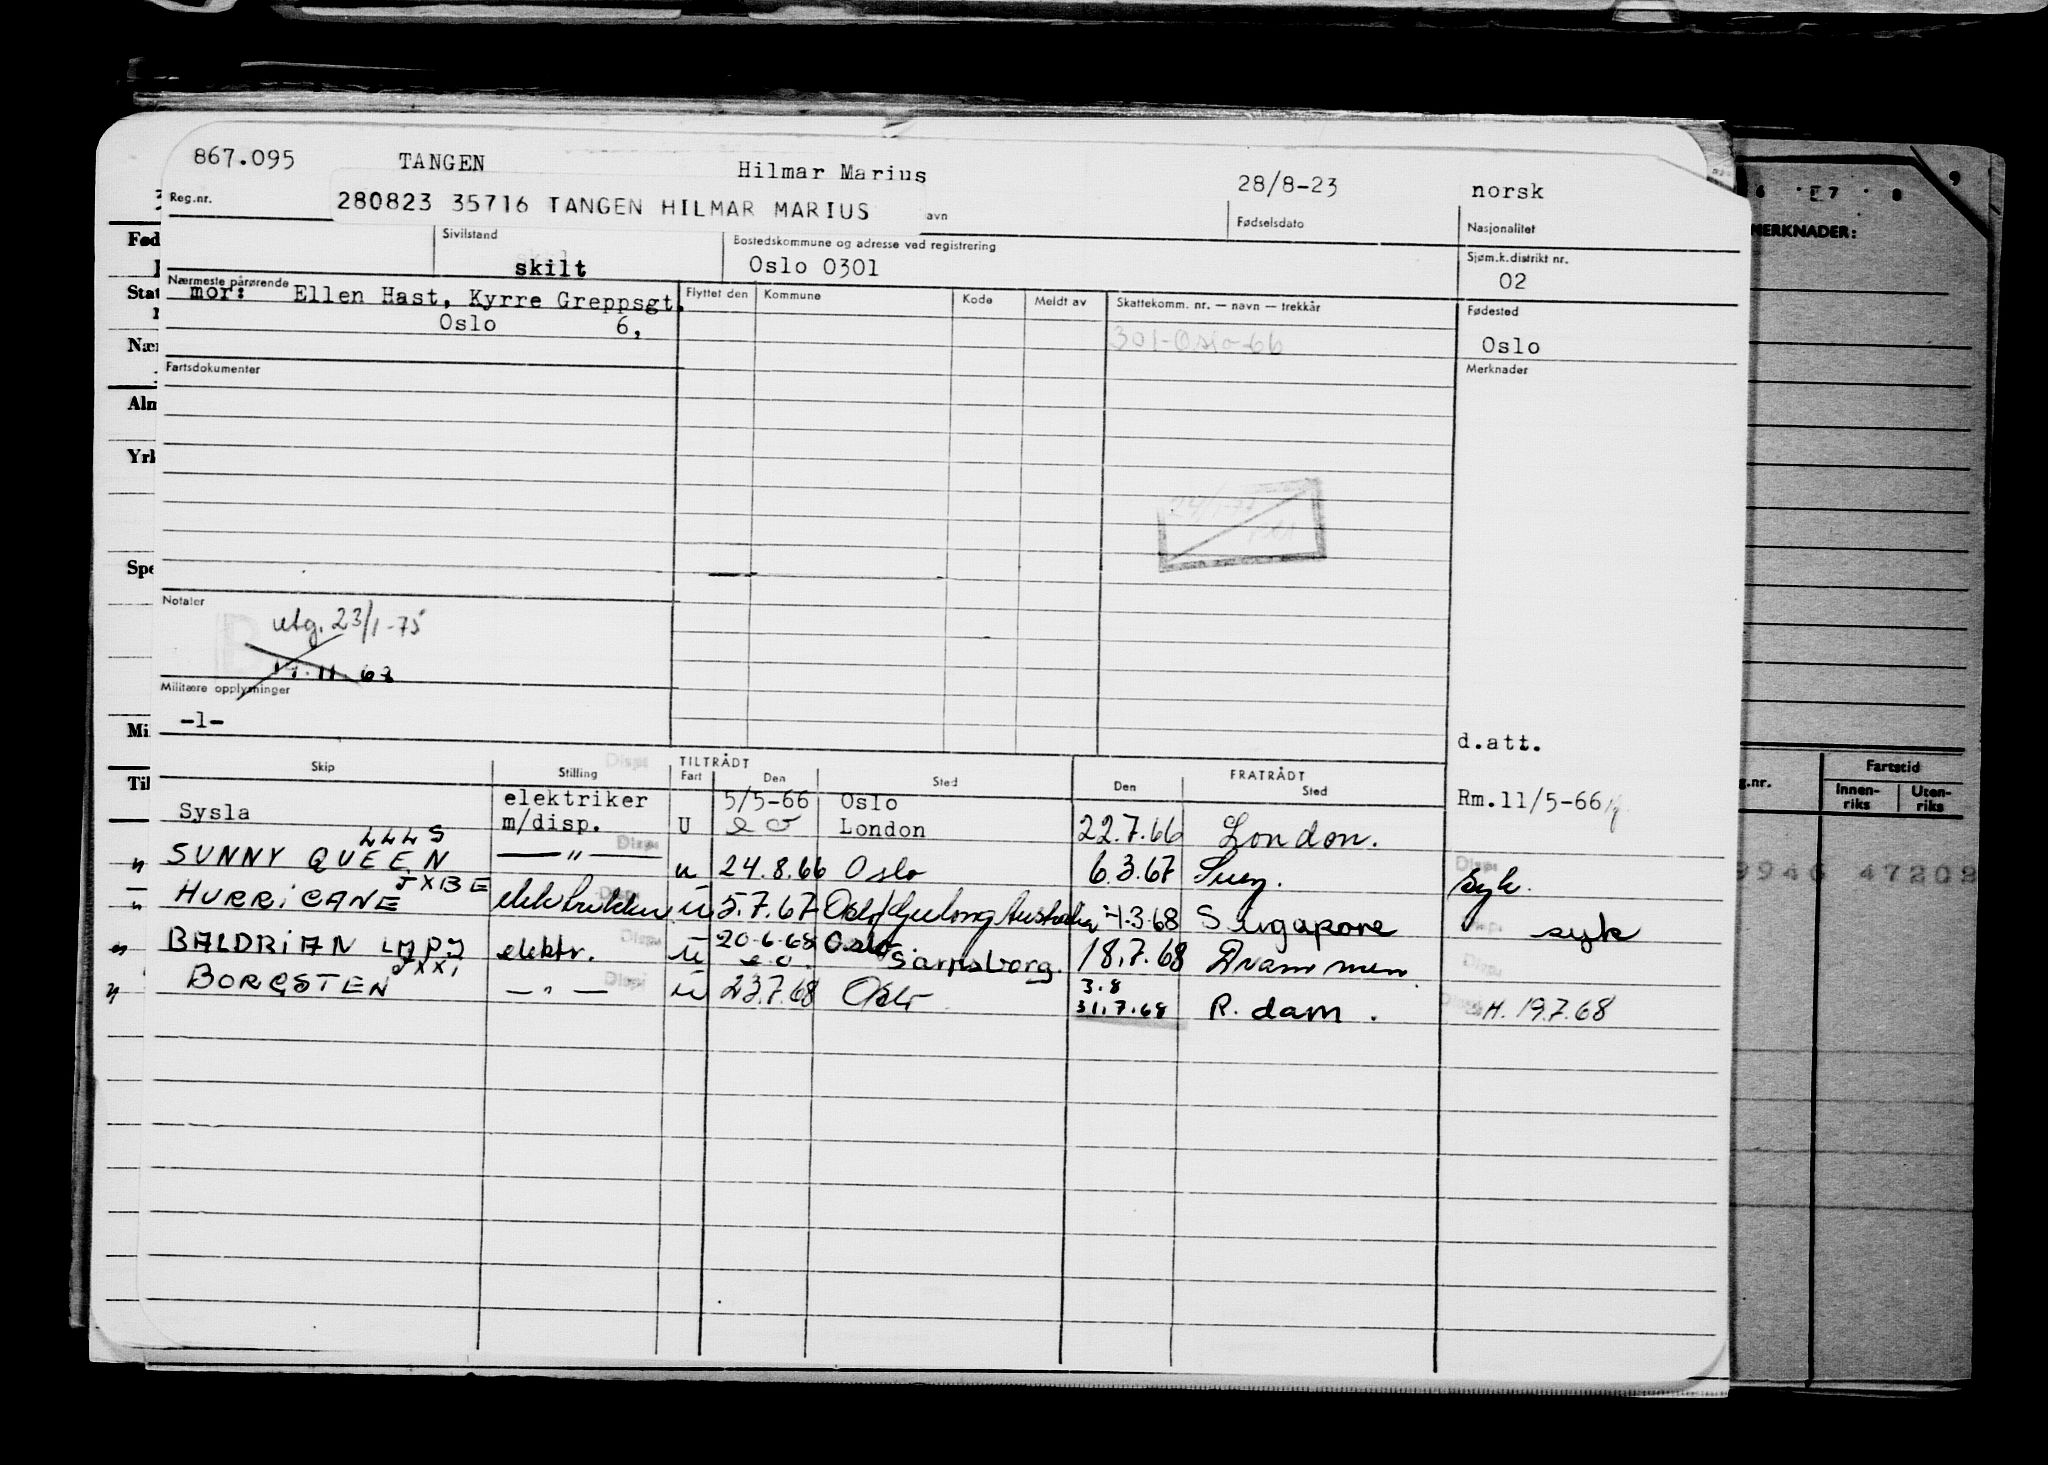 867.095 TANGEN Hilmar Marius 28/8-23 norsk
Reg.nr. 280823 35716 TANGEN HILMAR MARIUS avn Fødselsdato Nasjonalitet
Sivilstand Bostedskommune og adresse ved registrering Sjøm.k.distrikt nr.
skilt Oslo 0301 02
Nærmeste pårørende Flyttet den Kommune Kode Meldt av Skattekomm. nr. — navn — trekkår Fødested
mor: Ellen Hast, Kyrre Greppsgt.
Oslo 6, 301-Oslo-66 Oslo
Fartsdokumenter Merknader
24/1-77
Notater
utg. 23/1-75
Militære opplysninger
-1-
d.att.
Skip Stilling TILTRÅDT Fart Den Sted FRATRÅDT Den Sted
Sysla elektriker m/disp. U 5/5-66 Oslo London 22.7.66 London. Rm.11/5-66
LLLS
" SUNNY QUEEN —"— u 24.8.66 Oslo 6.3.67 Suez. syk.
JXBE
" HURRICANE u 5.7.67 Oslo/Geelong 4.3.68 Singapore syk
" BALDRIAN LAPJ elektr. u 20.6.68 Oslo Sarpsborg. 18.7.68 Drammen
JXXI
" BORGSTEN —"— u 23.7.68 Oslo 3.8 31.7.68 R.dam. H. 19.7.68
Fød
Stat
Nær
Alm
Yrk
Spe
Mi
Til
6 7 8 9
MERKNADER:
g.nr. Fartstid
Innen-riks Uten-riks
9946 47202